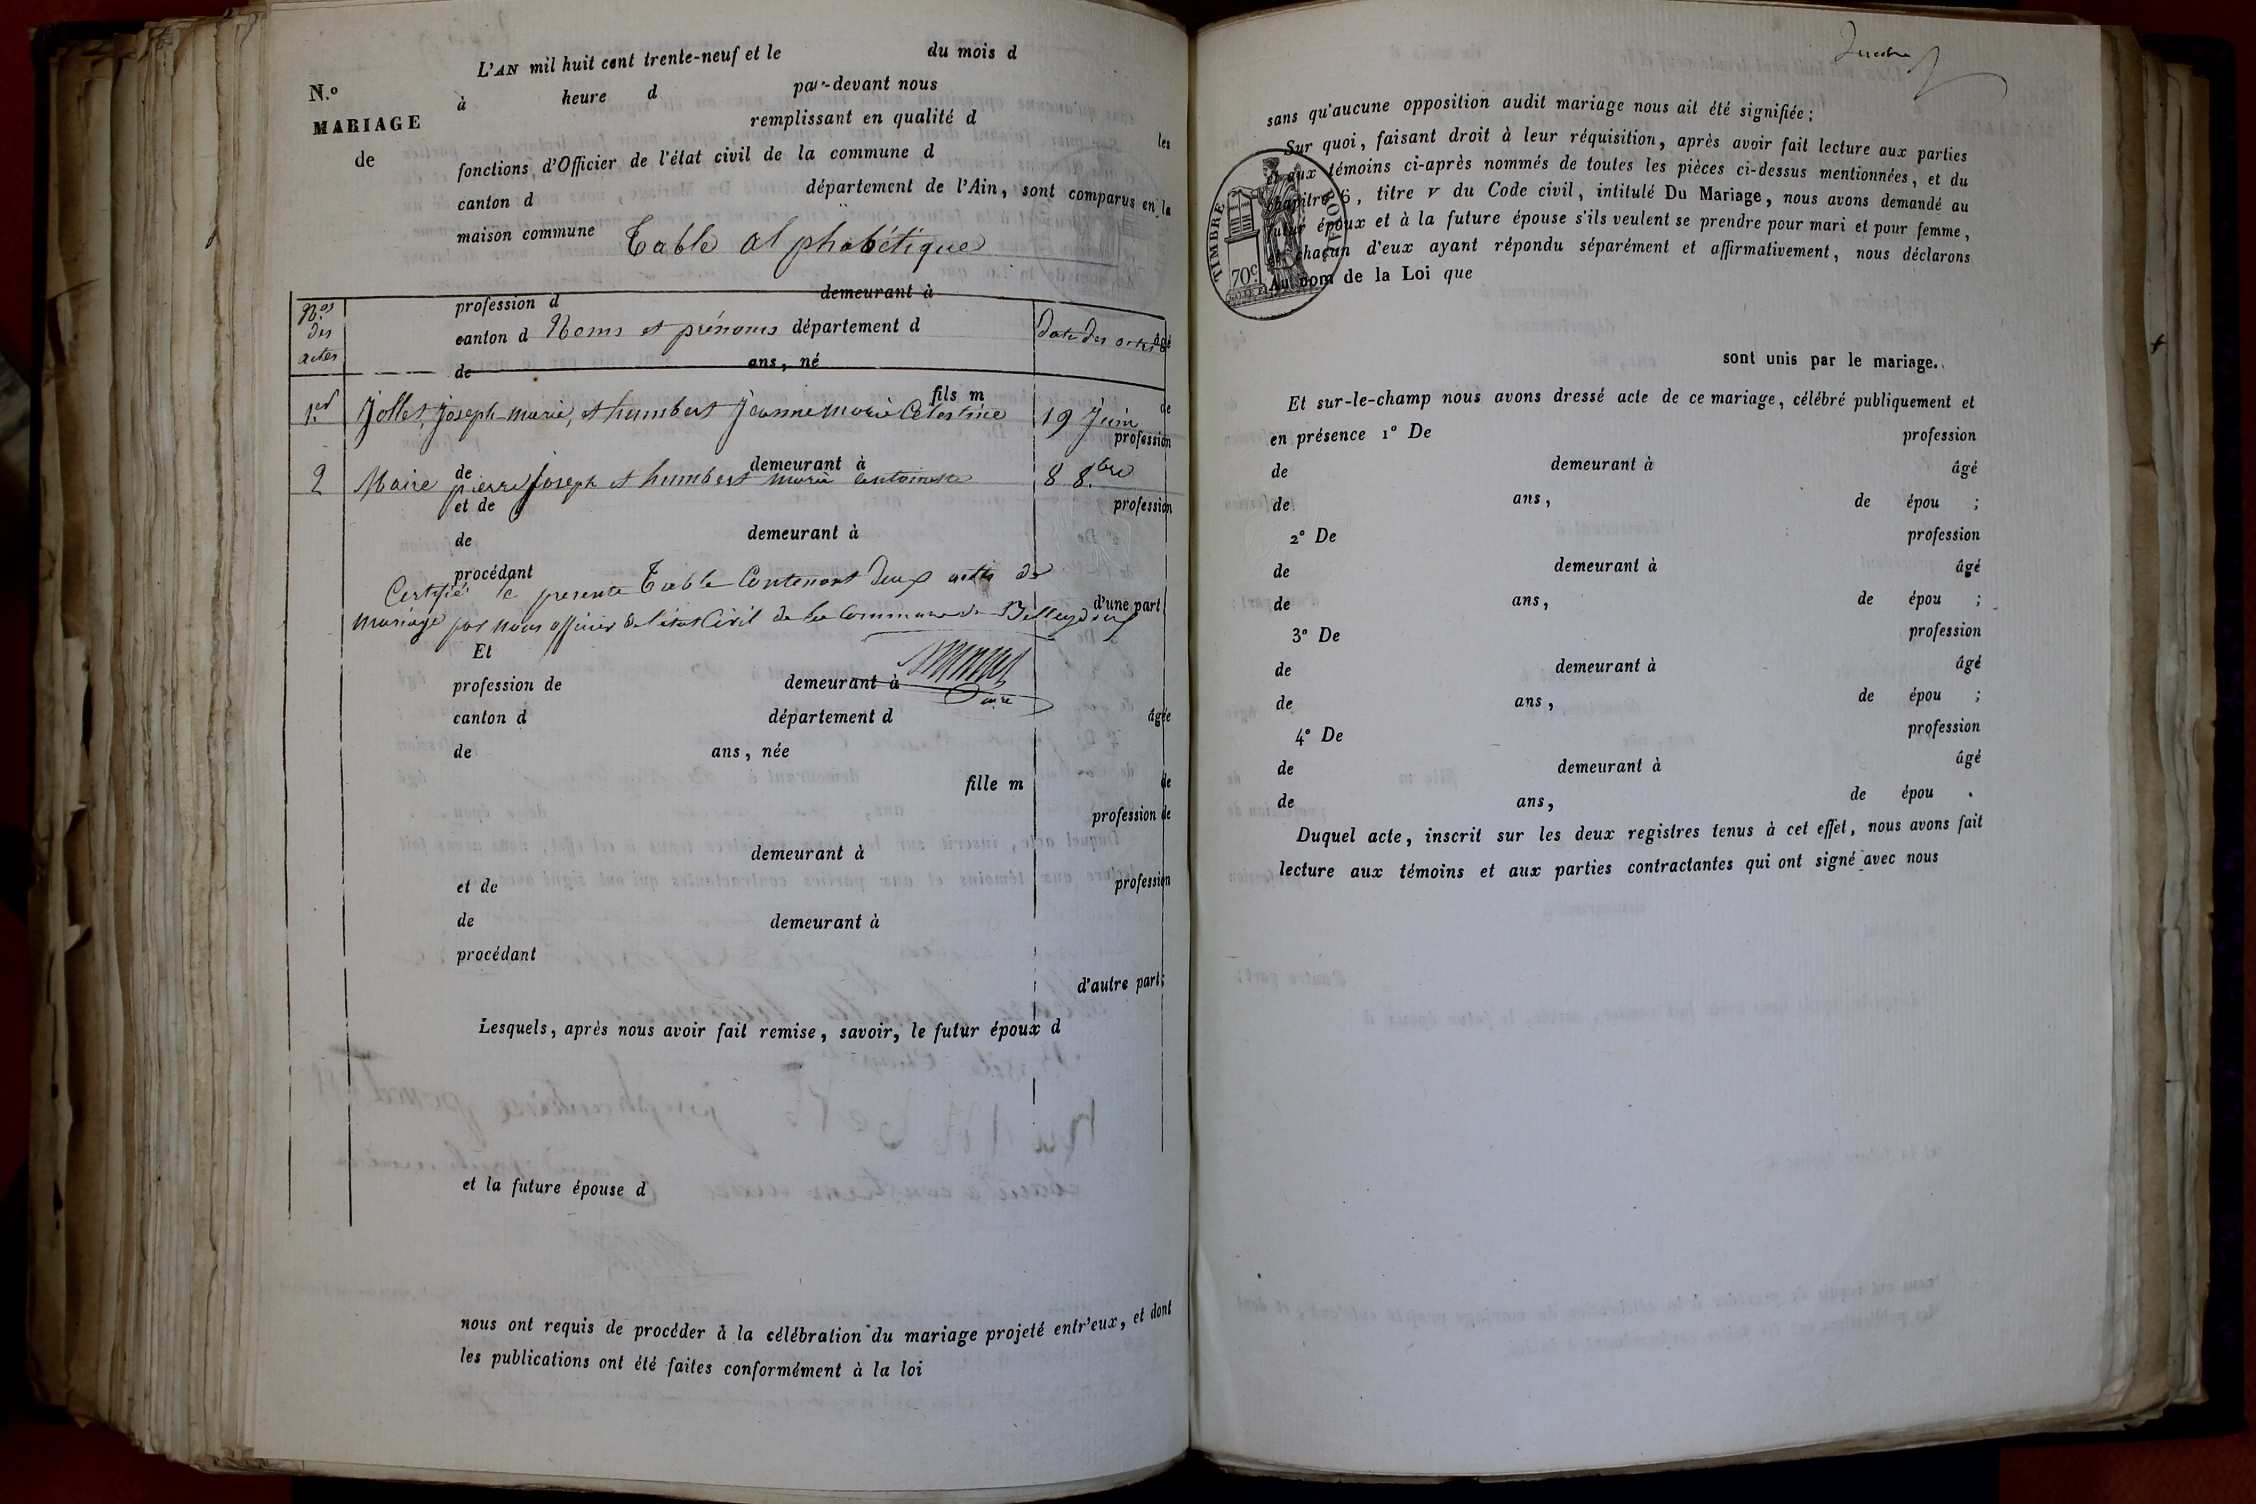 L'AN mil huit cent trente-neuf et le du mois d
N.o
MARIAGE
de
à heure d par-devant nous
remplissant en qualité d les
fonctions d'Officier de l'état civil de la commune d
canton d département de l'Ain, sont comparus en la
maison commune Table alphabétique
profession d demeurant à
N.os des actes
canton d Noms et prénoms département d
Date des actes âgé
de ans, né
fils m de
1.er Jollet, Joseph-marie, et humbert Jeanne marie Celestine 19 Juin
profession
de demeurant à
2 Maire pierre Joseph et humbert marie antoinette 8 8.bre
et de profession
de demeurant à
procédant
Certifié le presente Table Contenant deux actes de
d'une part
mariage par nous officier de l'état Civil de la Commune de Belleydoux
Et
profession de demeurant à
Maire
canton d département d âgée
de ans, née
fille m de
profession de
demeurant à
et de profession
de demeurant à
procédant
d'autre part;
Lesquels, après nous avoir fait remise, savoir, le futur époux d
et la future épouse d
nous ont requis de procéder à la célébration du mariage projeté entr'eux, et dont
les publications ont été faites conformément à la loi
sans qu'aucune opposition audit mariage nous ait été signifiée;
Sur quoi, faisant droit à leur réquisition, après avoir fait lecture aux parties
et aux témoins ci-après nommés de toutes les pièces ci-dessus mentionnées, et du
chapitre 6, titre v du Code civil, intitulé Du Mariage, nous avons demandé au
futur époux et à la future épouse s'ils veulent se prendre pour mari et pour femme,
et chacun d'eux ayant répondu séparément et affirmativement, nous déclarons
Au nom de la Loi que
TIMBRE ROYAL
70c
sont unis par le mariage.
Et sur-le-champ nous avons dressé acte de ce mariage, célébré publiquement et
en présence 1° De profession
de demeurant à âgé
de ans, de épou ;
2° De profession
de demeurant à âgé
de ans, de épou ;
3° De profession
de demeurant à âgé
de ans, de épou ;
4° De profession
de demeurant à âgé
de ans, de épou .
Duquel acte, inscrit sur les deux registres tenus à cet effet, nous avons fait
lecture aux témoins et aux parties contractantes qui ont signé avec nous